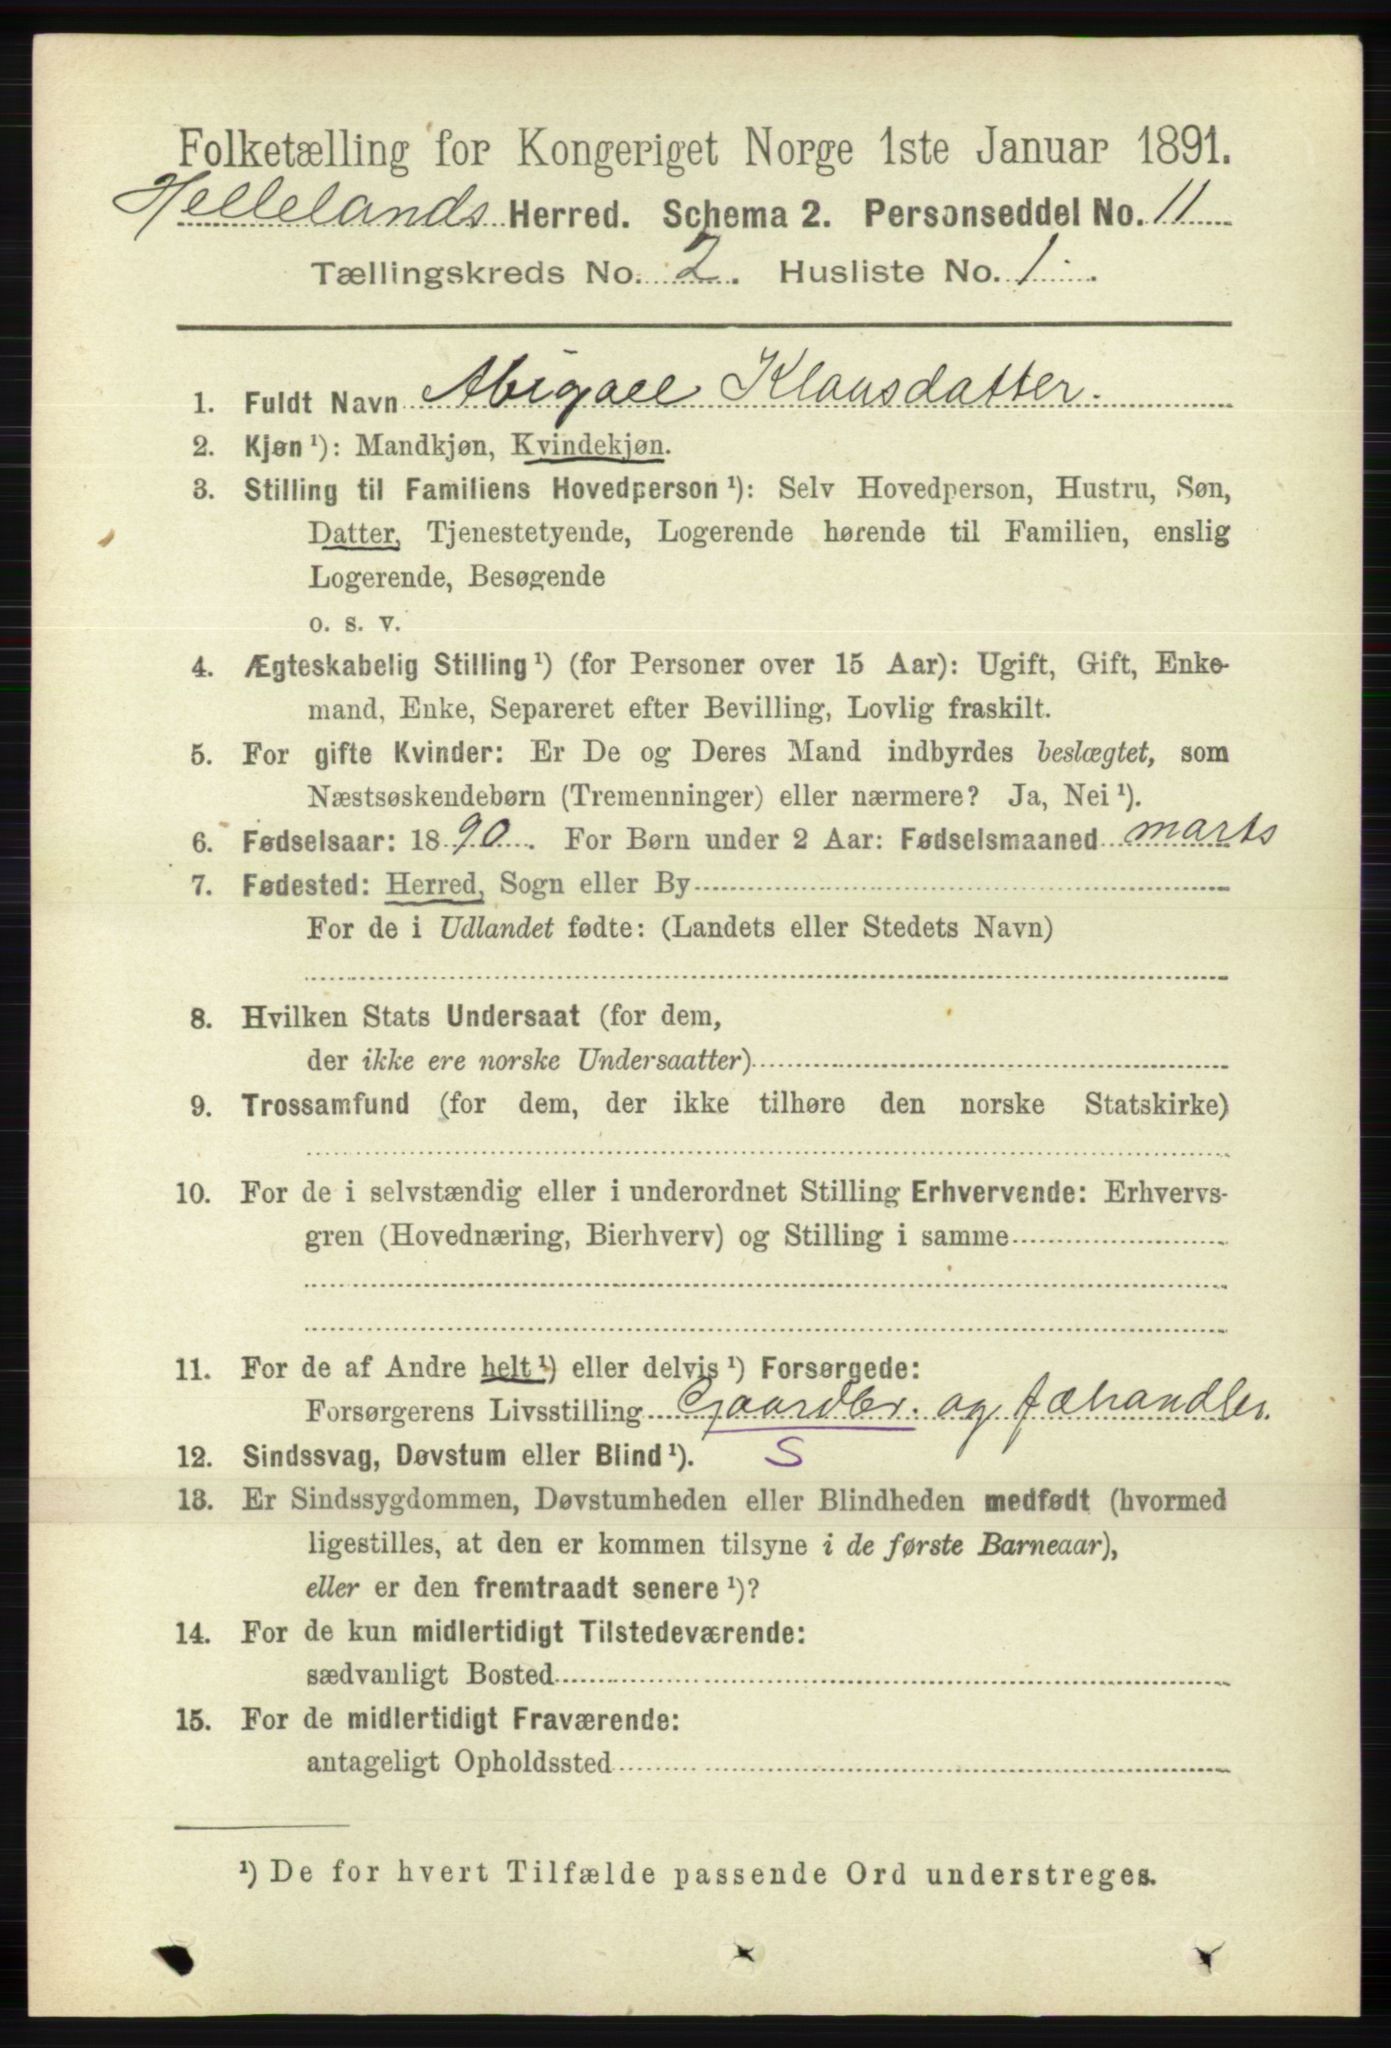 Folketælling for Kongeriget Norge 1ste Januar 1891.
Hellelands Herred. Schema 2. Personseddel No. 11
Tællingskreds No. 2. Husliste No. 1.
1. Fuldt Navn Abigael Klausdatter.
2. Kjøn ¹): Mandkjøn, Kvindekjøn.
3. Stilling til Familiens Hovedperson ¹): Selv Hovedperson, Hustru, Søn,
Datter, Tjenestetyende, Logerende hørende til Familien, enslig
Logerende, Besøgende
o. s. v.
4. Ægteskabelig Stilling ¹) (for Personer over 15 Aar): Ugift, Gift, Enke-
mand, Enke, Separeret efter Bevilling, Lovlig fraskilt.
5. For gifte Kvinder: Er De og Deres Mand indbyrdes beslægtet, som
Næstsøskendebørn (Tremenninger) eller nærmere? Ja, Nei ¹).
6. Fødselsaar: 1890. For Børn under 2 Aar: Fødselsmaaned marts
7. Fødested: Herred, Sogn eller By
For de i Udlandet fødte: (Landets eller Stedets Navn)
8. Hvilken Stats Undersaat (for dem,
der ikke ere norske Undersaatter)
9. Trossamfund (for dem, der ikke tilhøre den norske Statskirke)
10. For de i selvstændig eller i underordnet Stilling Erhvervende: Erhvervs-
gren (Hovednæring, Bierhverv) og Stilling i samme
11. For de af Andre helt ¹) eller delvis ¹) Forsørgede:
Forsørgerens Livsstilling Gaardbr. og fæhandler.
12. Sindssvag, Døvstum eller Blind ¹). S
13. Er Sindssygdommen, Døvstumheden eller Blindheden medfødt (hvormed
ligestilles, at den er kommen tilsyne i de første Barneaar),
eller er den fremtraadt senere ¹)?
14. For de kun midlertidigt Tilstedeværende:
sædvanligt Bosted
15. For de midlertidigt Fraværende:
antageligt Opholdssted
¹) De for hvert Tilfælde passende Ord understreges.